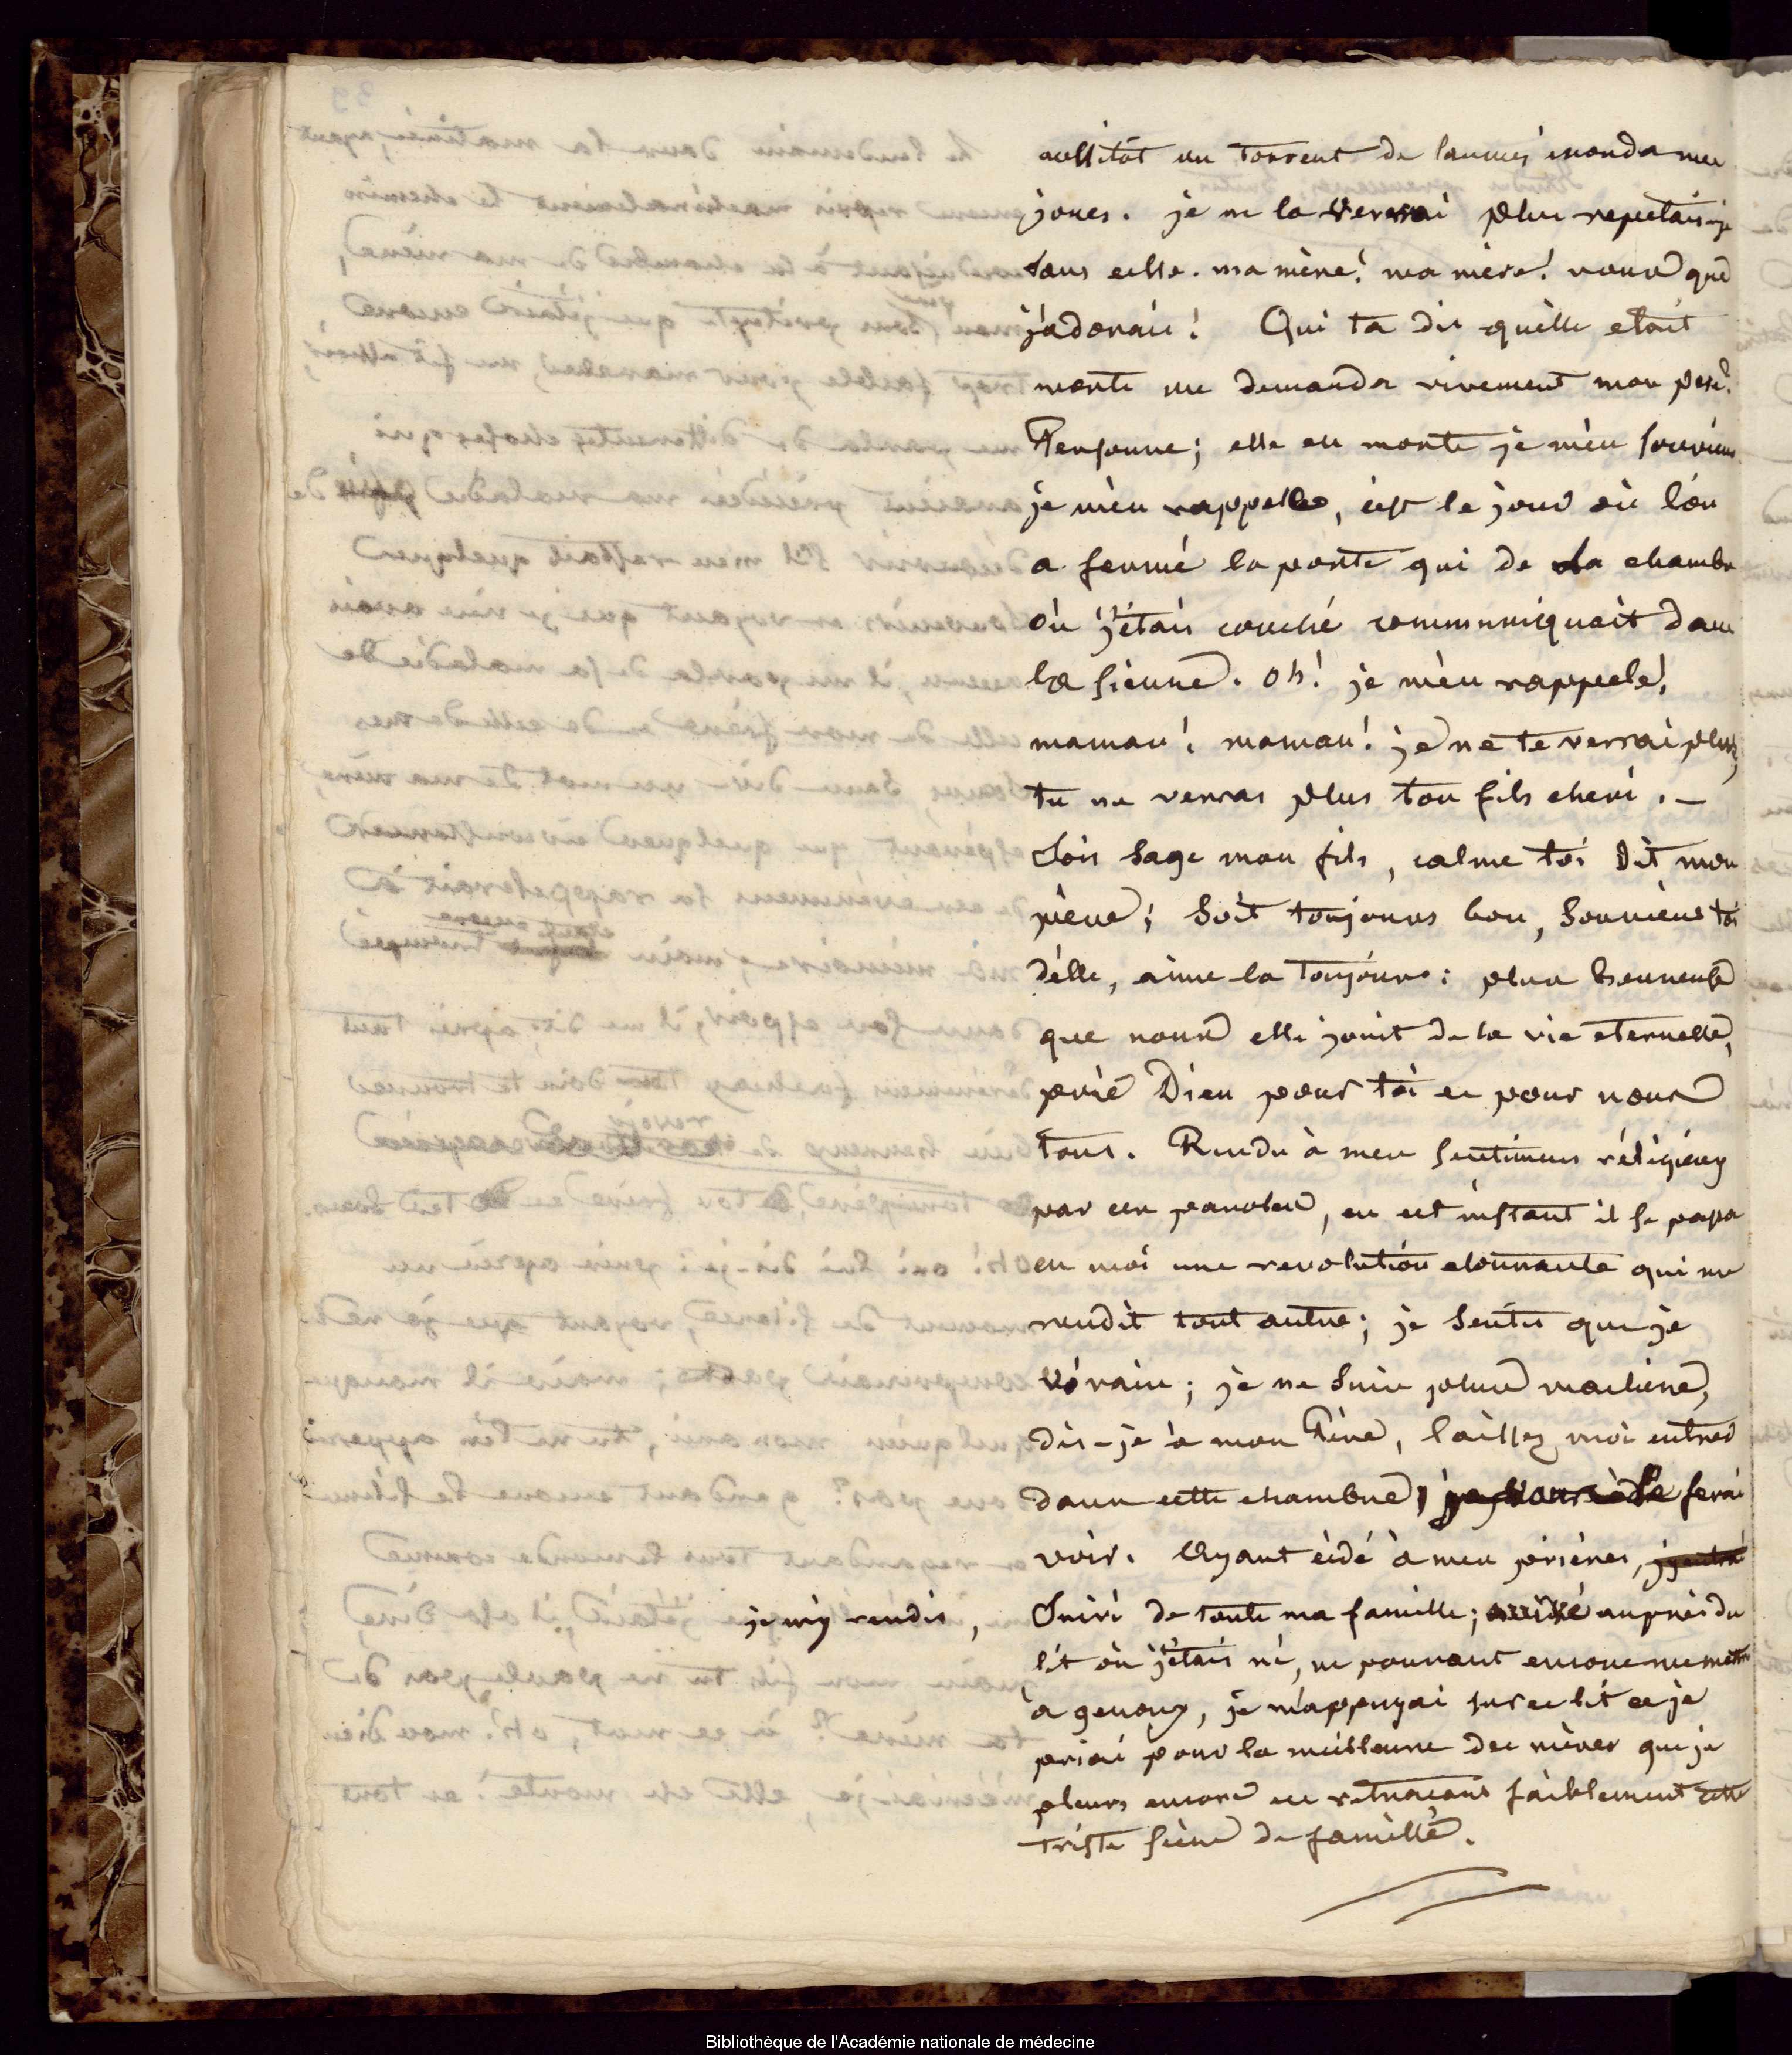 aussitôt un torrent de larmes inonda mes
joues. je ne la verrai plus repetais-je
sans cesse. ma mère! ma mère! vous que
j'adorais! Qui t'a dit qu'èlle etait
morte me demanda vivement mon père?
Personne; elle est morte je m'en souviens
je m'en rappelle, c'est le jour où l'on
a fermé la porte qui de la chambre
où j'étais couché communiquait dans
la sienne. oh! je m'en rappele!
maman! maman! je ne te verrai plus,
tu ne verras plus ton fils cheri. -
Sois sage mon fils, calme toi dit mon
père; soit toujours bon, souviens toi
d'elle, aime la toujours: plus heureuse
que nous elle jouit de la vie eternelle,
prie Dieu pour toi et pour nous
tous. Rendu à mes sentimens réligieux
par ces paroles, en cet instant il se passa
en moi une revolution etonnante qui me
rendit tout autre; je sentis que je
vivais; je ne suis plus machine,
dis-je à mon Père, laissez moi entrer
dans cette chambre, je vous le ferai
voir. Ayant cédé à mes prières, j'y entrai
je m'y rendis,
Suivi de toute ma famille; arrivé auprès du
lit où j'étais né, ne pouvant encore me mettre
à genoux, je m'appuyai sur ce lit et je
priai pour la meilleure des mères que je
pleurs encore en retracant faiblement cette
triste scène de famille.
Bibliothèque de l'Académie nationale de médecine